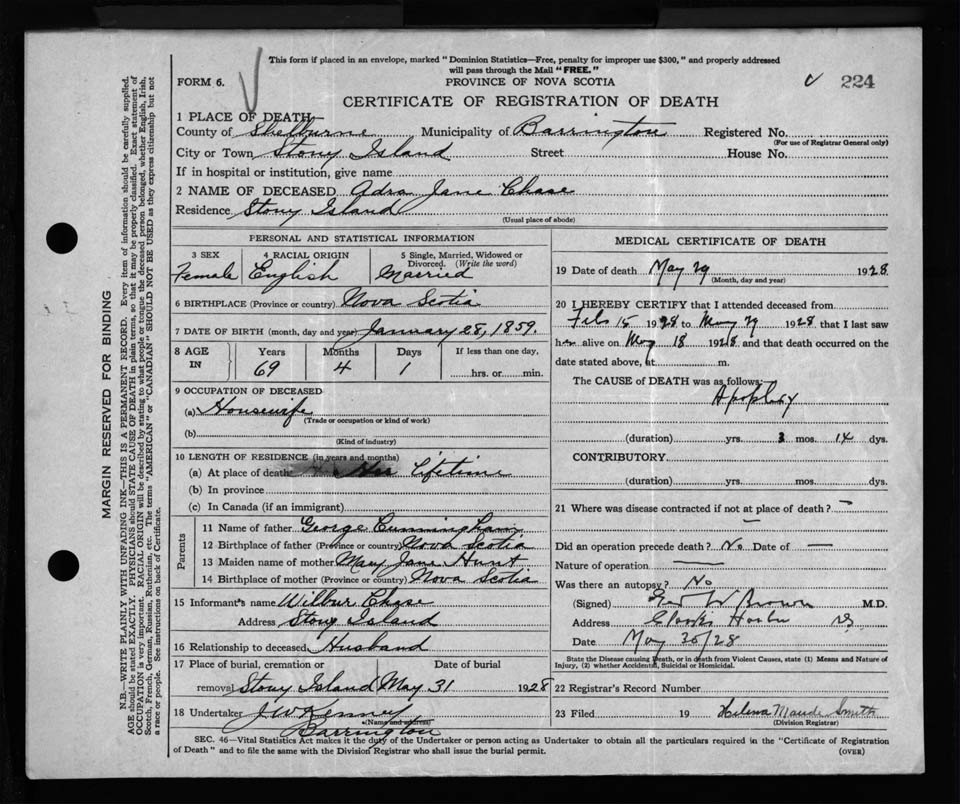 This form if placed in an envelope, marked "Dominion Statistics—Free, penalty for improper use $300," and properly addressed
will pass through the Mail "FREE."
FORM 6.
PROVINCE OF NOVA SCOTIA
224
CERTIFICATE OF REGISTRATION OF DEATH
1 PLACE OF DEATH—
County of Shelburne Municipality of Barrington Registered No.
(For use of Registrar General only)
City or Town Stony Island Street House No.
If in hospital or institution, give name
2 NAME OF DECEASED Adra Jane Chase
Residence Stony Island
(Usual place of abode)
MARGIN RESERVED FOR BINDING
N.B.—WRITE PLAINLY WITH UNFADING INK—THIS IS A PERMANENT RECORD. Every item of information should be carefully supplied.
AGE should be stated EXACTLY. PHYSICIANS should STATE CAUSE OF DEATH in plain terms, so that it may be properly classified. Exact statement of
OCCUPATION is very important. RACIAL ORIGIN will be described by stating to what people or tongue the deceased person belonged, whether English, Irish,
Scotch, French, German, Russian, Ruthenian, etc. The terms "AMERICAN" or "CANADIAN" SHOULD NOT BE USED as they express citizenship but not
a race or people. See instructions on back of Certificate.
PERSONAL AND STATISTICAL INFORMATION
3 SEX
Female
4 RACIAL ORIGIN
English
5 Single, Married, Widowed or
Divorced. (Write the word)
Married
6 BIRTHPLACE (Province or country) Nova Scotia
7 DATE OF BIRTH (month, day and year) January 28, 1859.
8 AGE IN
Years Months Days If less than one day,
69 4 1 hrs. or min.
9 OCCUPATION OF DECEASED
(a) Housewife
(Trade or occupation or kind of work)
(b)
(Kind of industry)
10 LENGTH OF RESIDENCE (in years and months)
(a) At place of death Lifetime
(b) In province
(c) In Canada (if an immigrant)
Parents
11 Name of father George Cunningham
12 Birthplace of father (Province or country) Nova Scotia
13 Maiden name of mother Mary Jane Hunt
14 Birthplace of mother (Province or country) Nova Scotia
15 Informant's name Wilbur Chase
Address Stony Island
16 Relationship to deceased Husband
17 Place of burial, cremation or Date of burial
removal Stony Island May 31 1928
18 Undertaker J W Kenney
(Name and address)
Barrington
MEDICAL CERTIFICATE OF DEATH
19 Date of death May 29 1928
(Month, day and year)
20 I HEREBY CERTIFY that I attended deceased from
Feb 15 1928 to May 29 1928 that I last saw
her alive on May 18 1928 and that death occurred on the
date stated above, at m.
The CAUSE of DEATH was as follows:
Apoplexy
(duration) yrs. 3 mos. 14 dys.
CONTRIBUTORY
(duration) yrs. mos. dys.
21 Where was disease contracted if not at place of death? —
—
Did an operation precede death? No Date of —
Nature of operation —
Was there an autopsy? No
(Signed) W Brown M.D.
Address Clarks Harbor NS
Date May 30/28
State the Disease causing Death, or in death from Violent Causes, state (1) Means and Nature of
Injury, (2) whether Accidental, Suicidal or Homicidal.
22 Registrar's Record Number
23 Filed 19 Maude Smith
(Division Registrar)
SEC. 46—Vital Statistics Act makes it the duty of the Undertaker or person acting as Undertaker to obtain all the particulars required in the "Certificate of Registration
of Death" and to file the same with the Division Registrar who shall issue the burial permit.
(OVER)